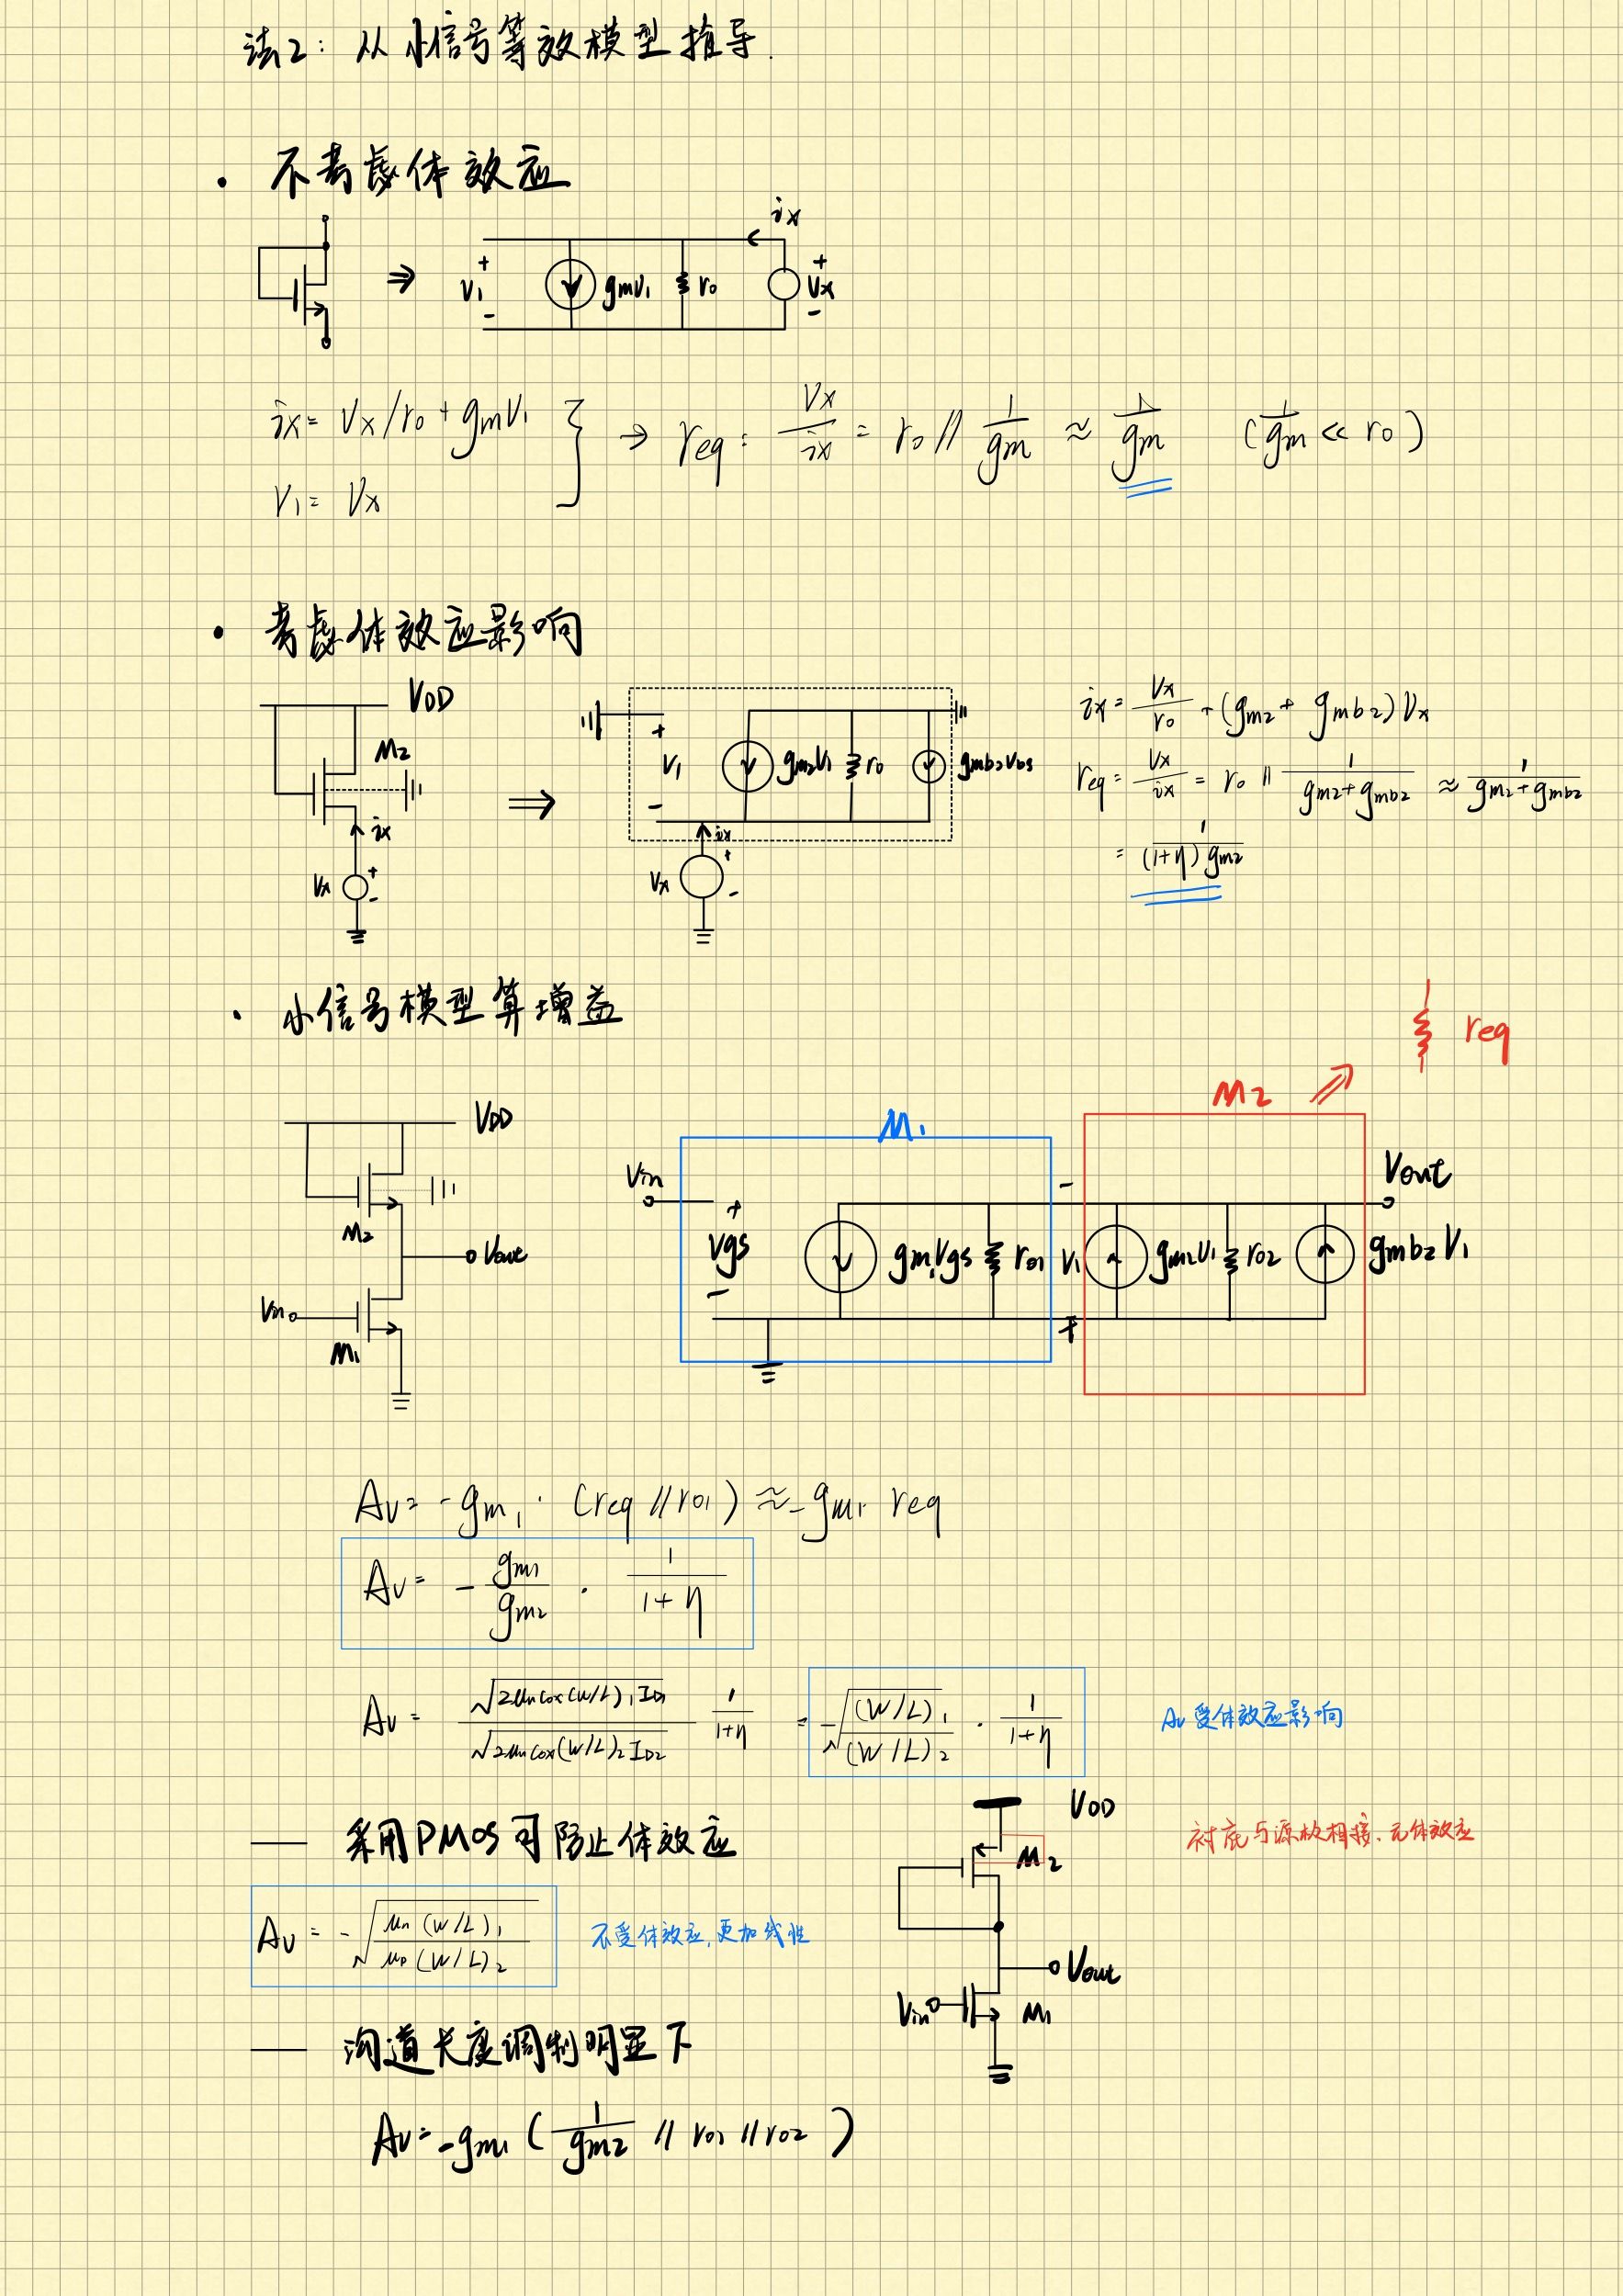 法2: 从小信号等效模型推导.
· 不考虑体效应
ix
V1 + - gmV1 r0 + Vx -
ix = Vx/r0 + gmV1
V1 = Vx
→ req = Vx/ix = r0 // 1/gm ≈ 1/gm (1/gm << r0)
· 考虑体效应影响
VDD
M2
ix
Vx + -
V1 + - gm2V1 r0 gmb2Vbs
ix
Vx + -
ix = Vx/r0 + (gm2 + gmb2) Vx
req = Vx/ix = r0 || 1/(gm2+gmb2) ≈ 1/(gm2+gmb2)
= 1/((1+η) gm2)
· 小信号模型算增益
req
M2
M1
VDD
M2
Vout
Vin
M1
Vin + Vgs - gm1Vgs r01 - V1 + gm2V1 r02 gmb2V1 Vout
Av = -gm1 · (req // r01) ≈ -gm1 req
Av = - gm1/gm2 · 1/(1+η)
Av = √(2μnCox(W/L)1ID1)/√(2μnCox(W/L)2ID2) 1/(1+η) = -√((W/L)1/(W/L)2) · 1/(1+η)
Av受体效应影响
— 采用PMOS可防止体效应
VDD
M2
衬底与源极相接、无体效应
Av = -√(μn(W/L)1/μp(W/L)2)
不受体效应,更加线性
Vout
Vin
M1
— 沟道长度调制明显下
Av = -gm1 ( 1/gm2 // r01 // r02 )